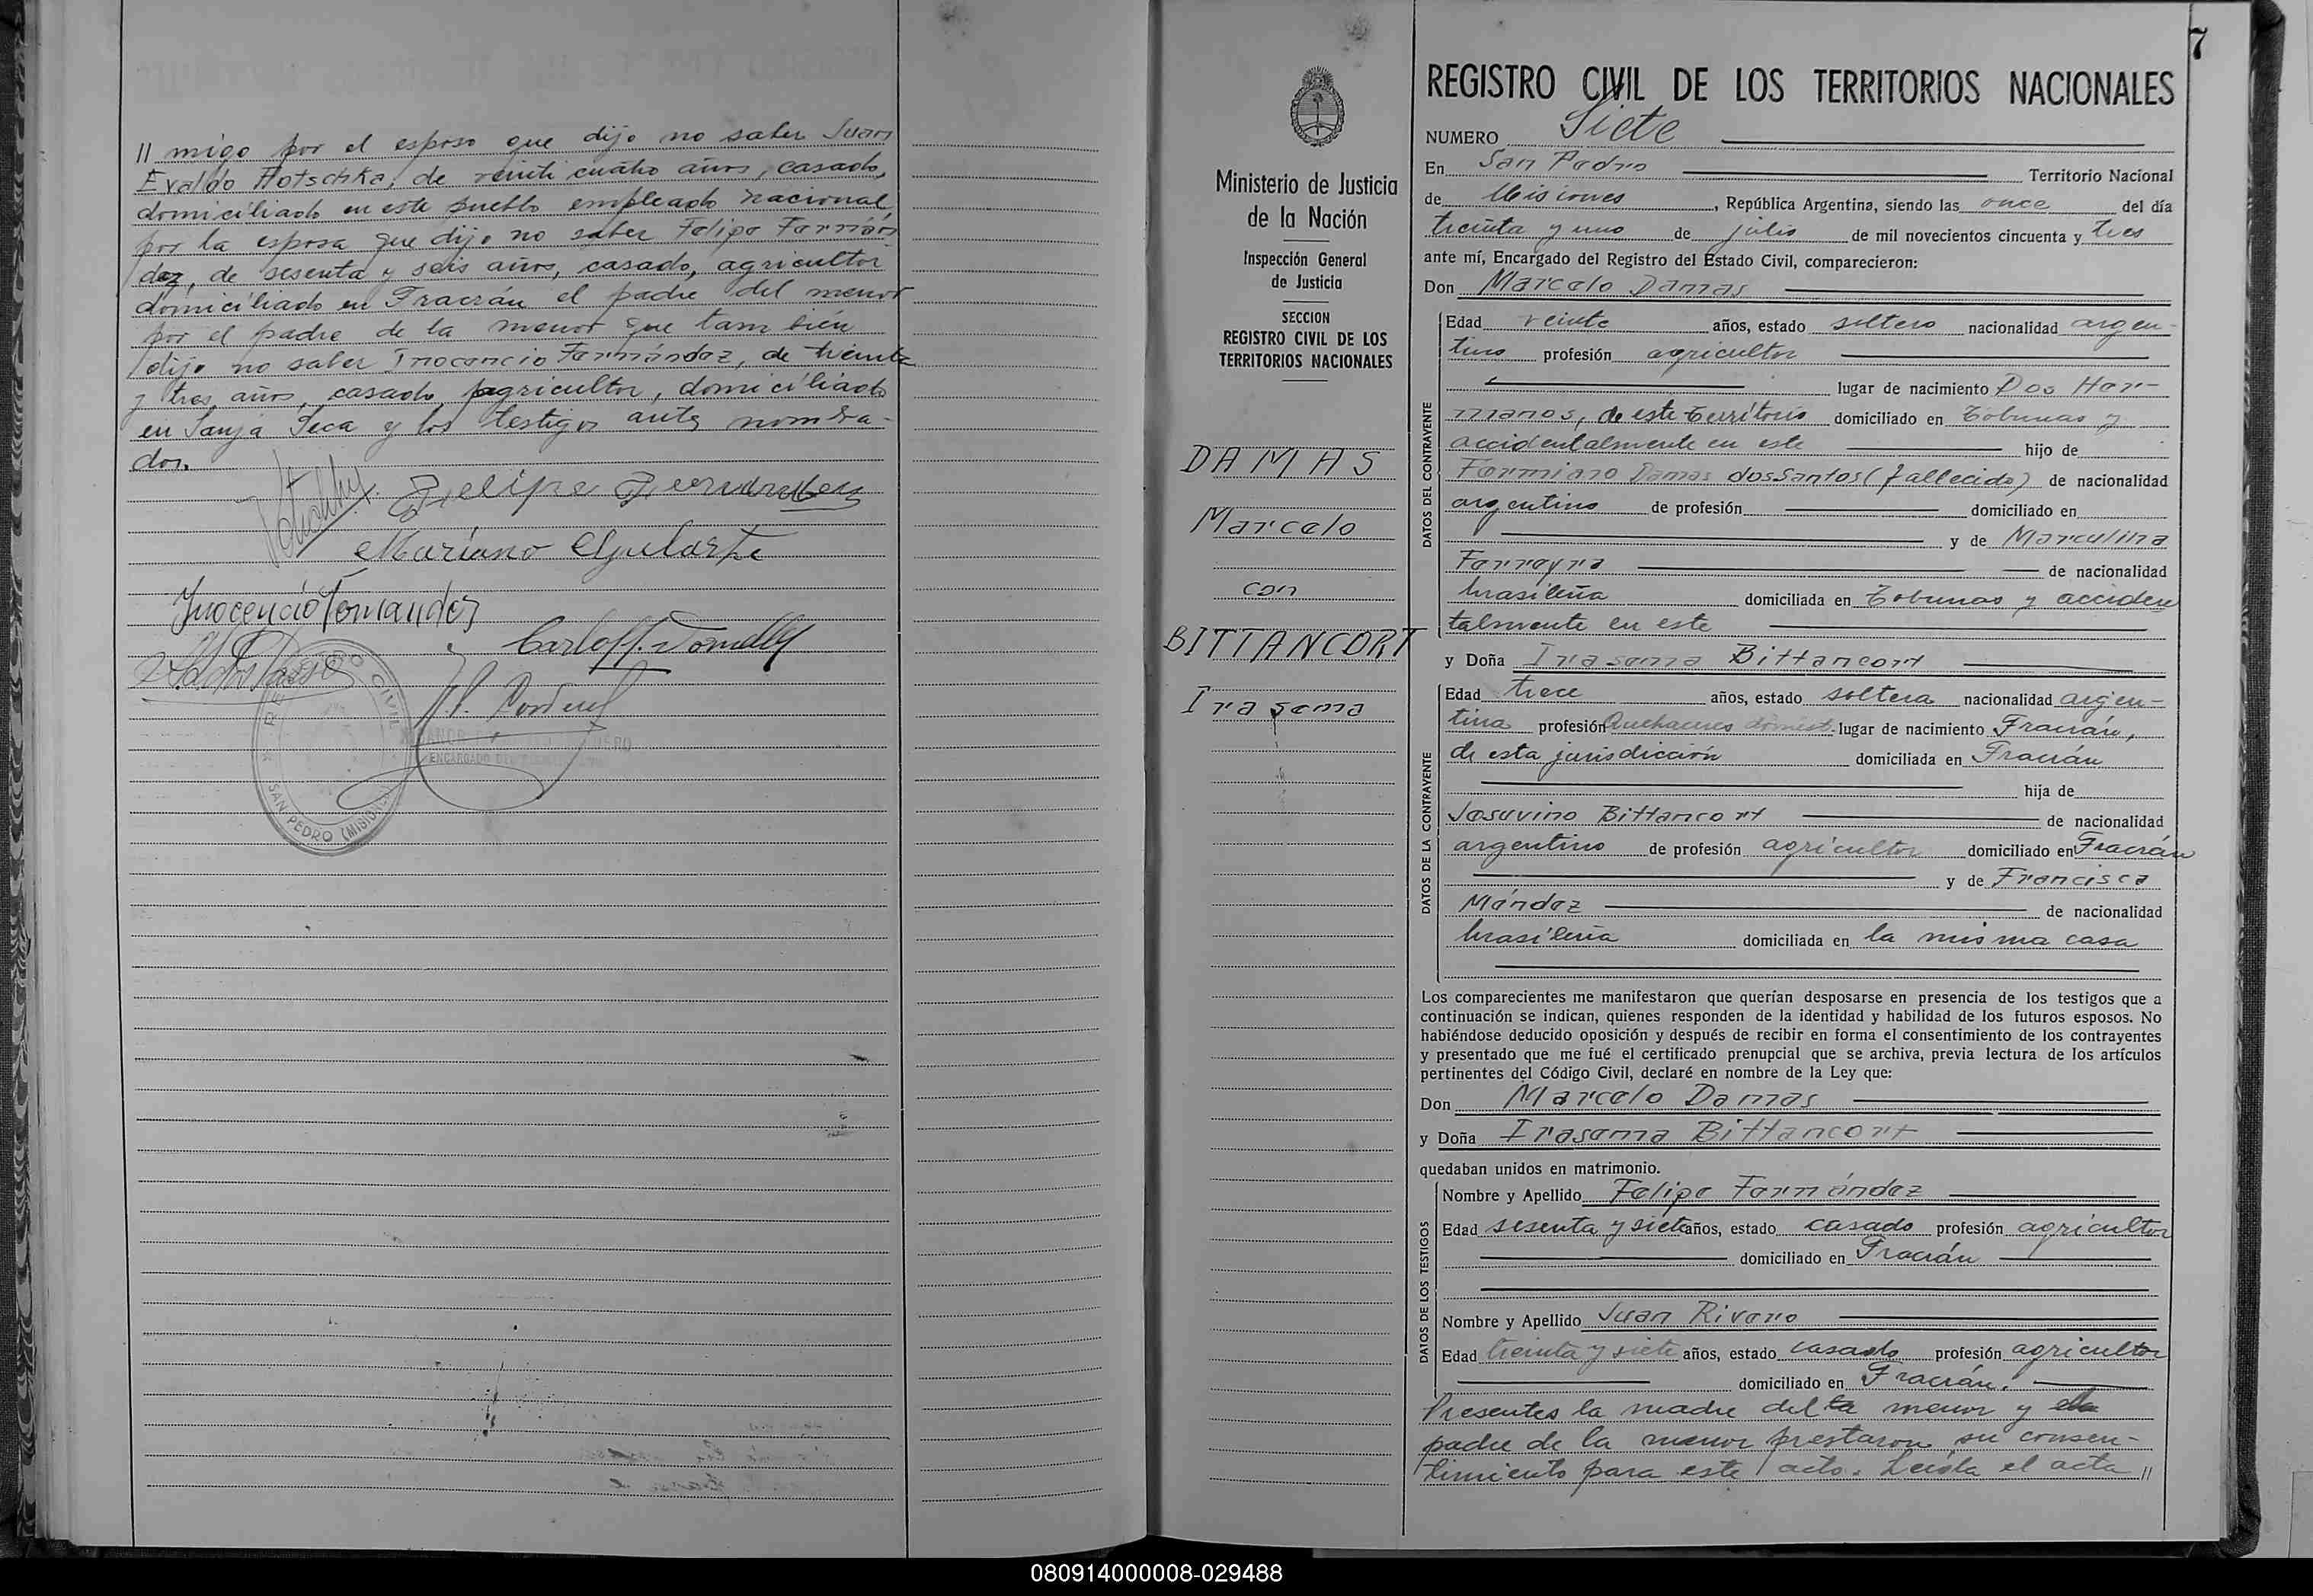 // migo por el esposo que dijo no saber Juan
Evaldo Hotschka, de veinticuatro años, casado,
domiciliado en este pueblo empleado nacional,
por la esposa que dijo no saber Felipe Fernán
dez, de sesenta y seis años, casado, agricultor
domiciliado en Fracrán el padre del menor
por el padre de la menor que tam bién
dijo no saber Inocencio Fernández, de treinta
y tres años, casado, agricultor, domiciliado
en Sanja Seca y los testigos antes nombra-
dos.
Felipe Fernandez
Mariano
Inocencio Fernandez
REGISTRO CIVIL
SAN PEDRO (MISIONES)
ENCARGADO
7
Ministerio de Justicia
de la Nación
Inspección General
de Justicia
SECCION
REGISTRO CIVIL DE LOS
TERRITORIOS NACIONALES
DAMAS
Marcelo
con
BITTANCORT
Irasema
REGISTRO CIVIL DE LOS TERRITORIOS NACIONALES
NUMERO Siete
En San Pedro Territorio Nacional
de Misiones, República Argentina, siendo las once del día
treinta y uno de julio de mil novecientos cincuenta y tres
ante mí, Encargado del Registro del Estado Civil, comparecieron:
Don Marcelo Damas
DATOS DEL CONTRAYENTE
Edad veinte años, estado soltero nacionalidad argen-
tino profesión agricultor
lugar de nacimiento Dos Her-
manos, de este territorio domiciliado en Tobunas y
accidentalmente en este hijo de
Fermiano Damas dos Santos (fallecido) de nacionalidad
argentino de profesión domiciliado en
y de Marculina
Ferreyra de nacionalidad
brasileña domiciliada en Tobunas y acciden
talmente en este
y Doña Irasema Bittancort
DATOS DE LA CONTRAYENTE
Edad trece años, estado soltera nacionalidad argen-
tina profesión Quehaceres domést. lugar de nacimiento Fracrán,
de esta jurisdicción domiciliada en Fracrán
hija de
Josuvino Bittancort de nacionalidad
argentino de profesión agricultor domiciliado en Fracrán
y de Francisca
Méndez de nacionalidad
brasileña domiciliada en la misma casa
Los comparecientes me manifestaron que querían desposarse en presencia de los testigos que a
continuación se indican, quienes responden de la identidad y habilidad de los futuros esposos. No
habiéndose deducido oposición y después de recibir en forma el consentimiento de los contrayentes
y presentado que me fué el certificado prenupcial que se archiva, previa lectura de los artículos
pertinentes del Código Civil, declaré en nombre de la Ley que:
Don Marcelo Damas
y Doña Irasema Bittancort
quedaban unidos en matrimonio.
DATOS DE LOS TESTIGOS
Nombre y Apellido Felipe Fernández
Edad sesenta y siete años, estado casado profesión agricultor
domiciliado en Fracrán
Nombre y Apellido Juan Rivero
Edad treinta y siete años, estado casado profesión agricultor
domiciliado en Fracrán.
Presentes la madre del menor y
padre de la menor prestaron su consen-
timiento para este acto. Leída el acta //
080914000008-029488